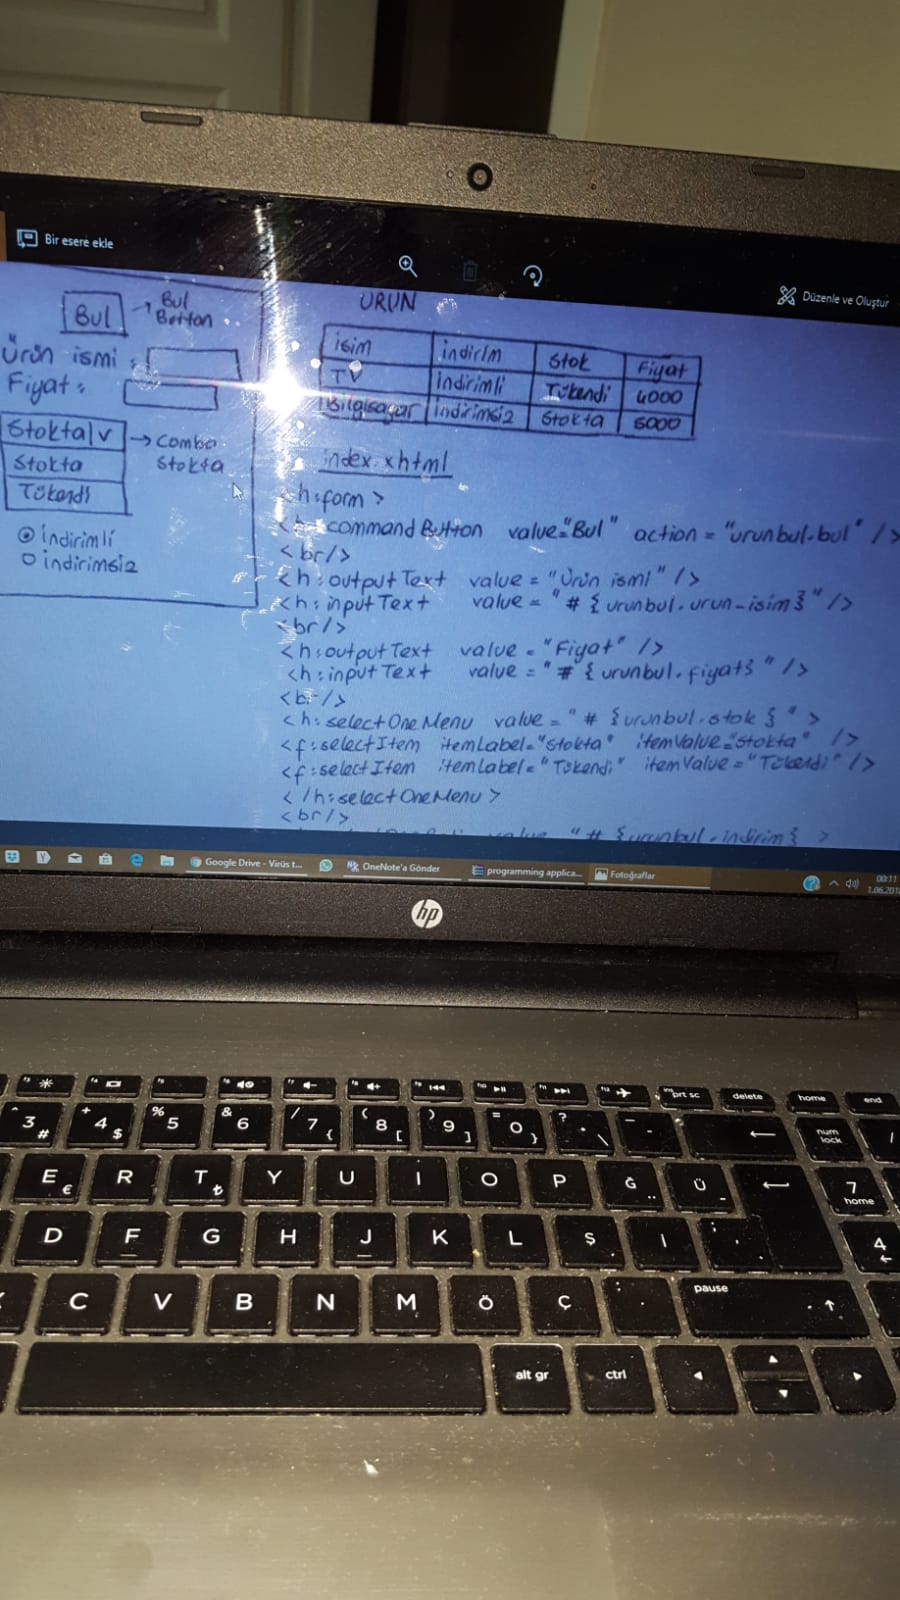 Bir esere ekle
Düzenle ve Oluştur
Bul
→ Bul
Button
Ürün ismi :
Fiyat :
Stokta|v
→ Combo
Stokta
Stokta
Tükendi
indirimli
indirimsiz
ÜRÜN
isim indirim Stok Fiyat
TV indirimli Tükendi 4000
Bilgisayar indirimsiz Stokta 5000
index.xhtml
<h:form>
commandButton value="Bul" action = "urunbul.bul" />
<br/>
<h:outputText value = "Ürün ismi" />
<h:inputText value = "# {urunbul.urun-isim}" />
<br/>
<h:outputText value = "Fiyat" />
<h:inputText value = "# {urunbul.fiyat} " />
<br/>
<h:selectOneMenu value = "# {urunbul.stok} " >
<f:selectItem itemLabel="Stokta" itemValue="Stokta" />
<f:selectItem itemLabel="Tükendi" itemValue="Tükendi" />
</h:selectOneMenu>
<br/>
value "# {urunbul.indirim} >
Google Drive - Virüs t...
OneNote'a Gönder
programming applica...
Fotoğraflar
00:11
1.06.201
hp
prt sc delete home end
3 # 4 $ % 5 & 6 / 7 { ( 8 [ ) 9 ] = 0 } ? \ num lock
E € R T ₺ Y U I O P Ğ Ü 7 home
D F G H J K L Ş İ 4
C V B N M Ö Ç pause
alt gr ctrl